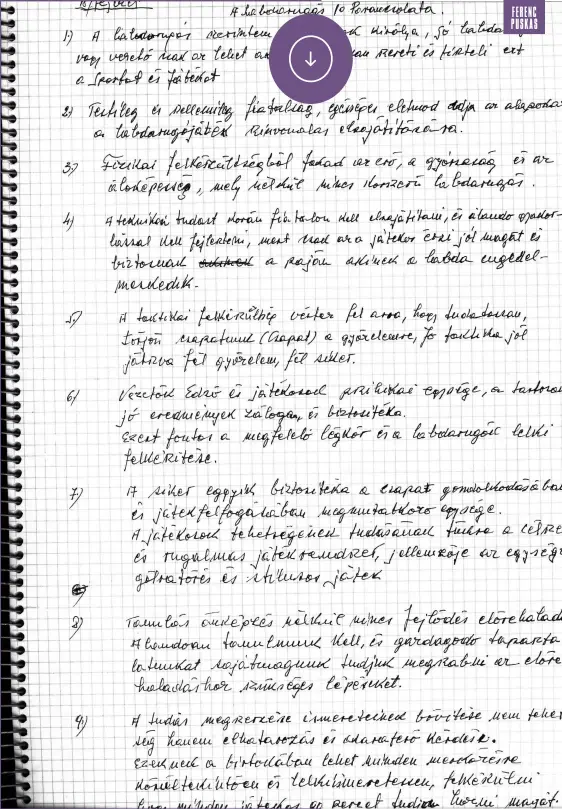 FERENC
PUSKÁS
A labdarugás 10 Parancsolata.
1) A labdarugás szerintem királya, jó labda
vagy vezető csak az lehet szereti és tiszteli ezt
a Sportot és játékot
2) Testileg és szellemileg fiatalság, egészséges életmód adja az alapokat
a labdarugójáték színvonalas elsajátitására.
3) Fizikai felkészültségből fakad az erő, a gyorsaság és az
állóképesség, mely nélkül nincs korszerű labdarugás.
4) A teknikai tudást korán fiatalon kell elsajátitani, és álando gyakor-
lással kell fejleszteni, mert csak az a játékos érzi jól magát és
biztosnak a paján akinek a labda engedel-
meskedik.
5) A taktikai felkészültség vértez fel arra, hogy tudatosan,
törjön csapatunk (Csapat) a győzelemre, jó taktika jól
játszva fél győzelem, fél siker.
6) Vezetők Edző és játékosok egysége, a tartosan
jó eredmények záloga, és biztositéka.
Ezért fontos a megfelelő légkör és a labdarugók lelki
felkészitése.
7) A siker egyik biztositéka a csapat gondolkodásában
és játékfelfogásában megmutatkozó egysége.
A játékosok tehetségének tudásának tükre a célsze
és rugalmas játékrendszer, jellemzője az egységes
gólratörés és stilusos játék
8) Tanulás önképzés nélkül nincs fejlődés előrehalad
Álandoan tanulnunk kell, és gazdagodó tapaszta
latunkat sajátmagunk tudjuk megszabni az előre
haladáshoz szükséges lépéseket.
9) A tudás megszerzése ismereteinek bővitése nem tehet
ség hanem elhatározás és akaraterő kérdése.
Ezeknek a birtokában lehet minden mérkőzésre
körültekintően és lelkiismeretesen, felkészülni
minden játékos magát.